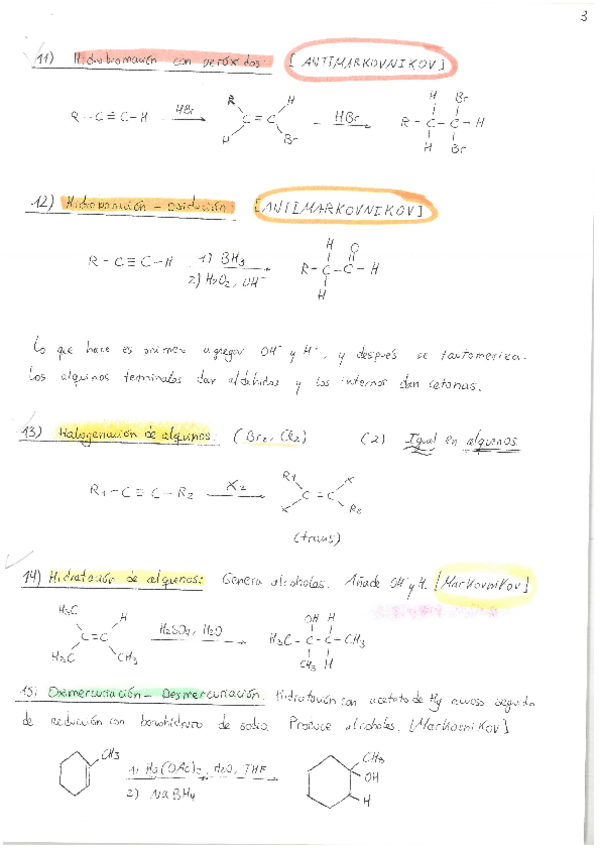 3
11) Hidrobromación con peróxidos: [ANTIMARKOVNIKOV]
R-C≡C-H HBr → R H C=C H Br HBr → R-C-C-H H Br H Br
12) Hidroboración - oxidación: [ANTIMARKOVNIKOV]
R-C≡C-H 1) BH3 2) H2O2, OH⁻ → R-C-C-H H O H
Lo que hace es primero agregar OH⁻ y H⁺, y después se tautomeriza.
Los alquinos terminales dan aldehídos y los internos dan cetonas.
13) Halogenación de alquinos: (Br2, Cl2) (2) Igual en alquenos
R1-C≡C-R2 X2 → R1 X C=C X R2
(trans)
14) Hidratación de alquenos: Genera alcoholes. Añade OH⁻ y H. [Markovnikov]
H3C H C=C H3C CH3 H2SO4, H2O → OH H H3C-C-C-CH3 CH3 H
15) Oximercuriación - Desmercuriación: Hidratación con acetato de Hg acuoso seguida
de reducción con borohidruro de sodio. Produce alcoholes. [Markovnikov]
CH3 1) Hg(OAc)2, H2O, THF 2) NaBH4 → CH3 OH H